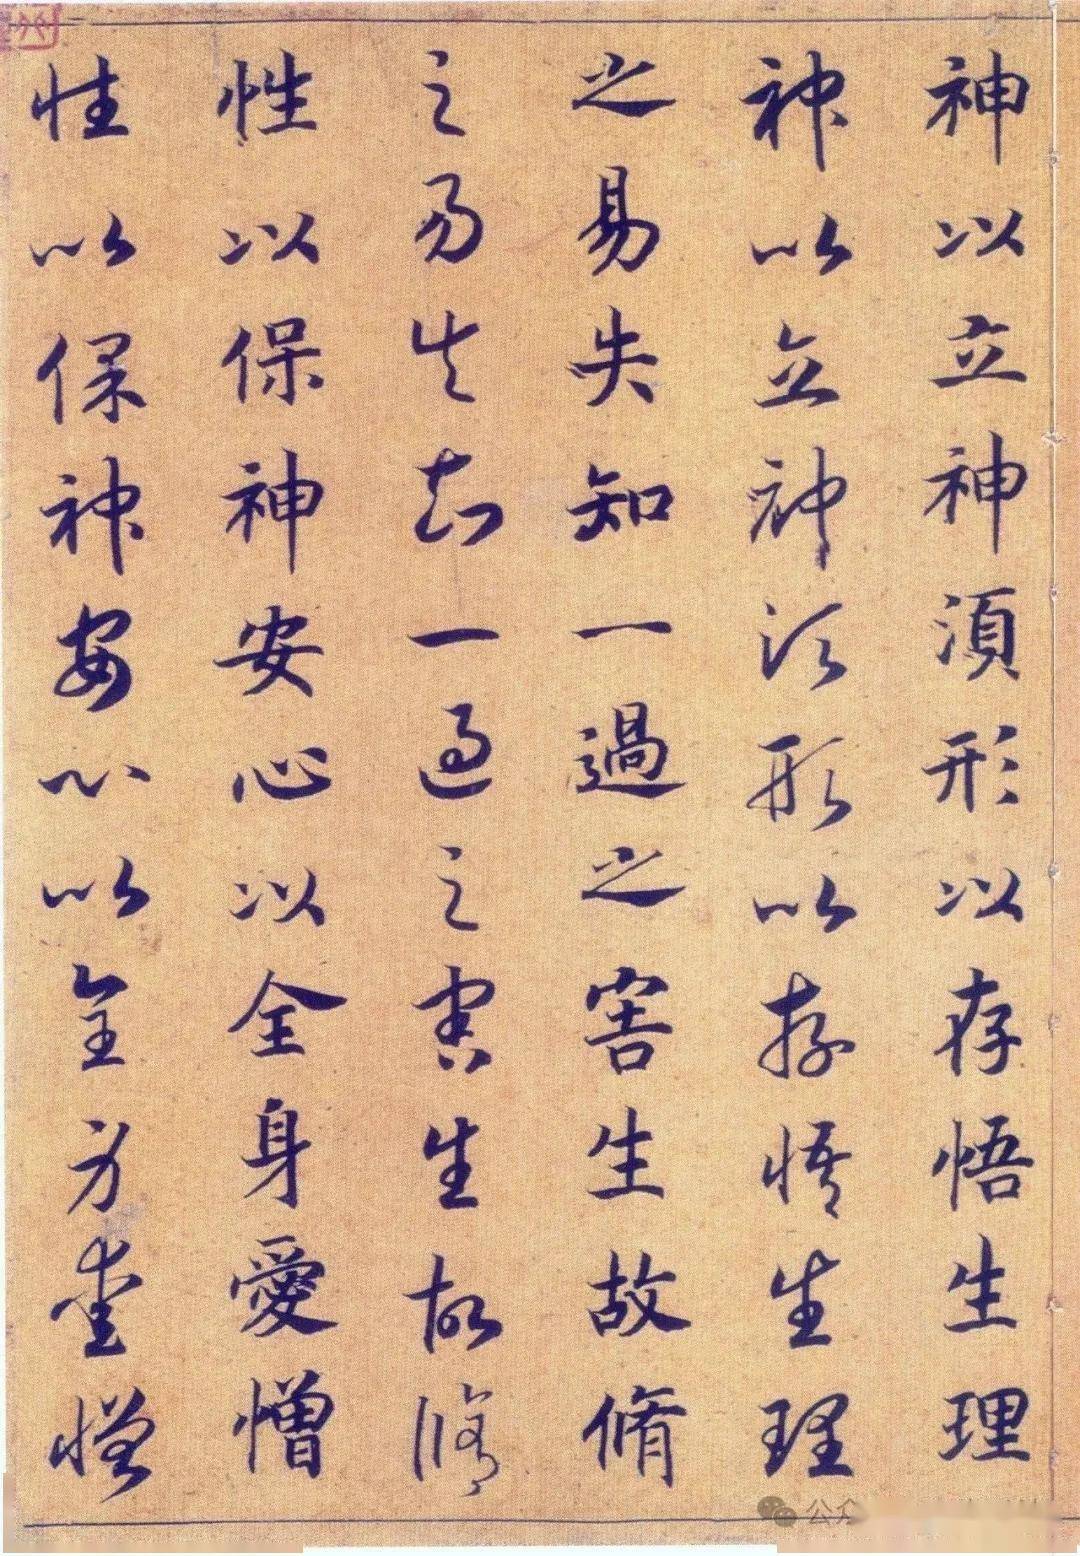 神以立神須形以存悟生理
神以立神須形以存悟生理
之易失知一過之害生故脩
之易失知一過之害生故脩
性以保神安心以全身愛憎
性以保神安心以全身愛憎
公众